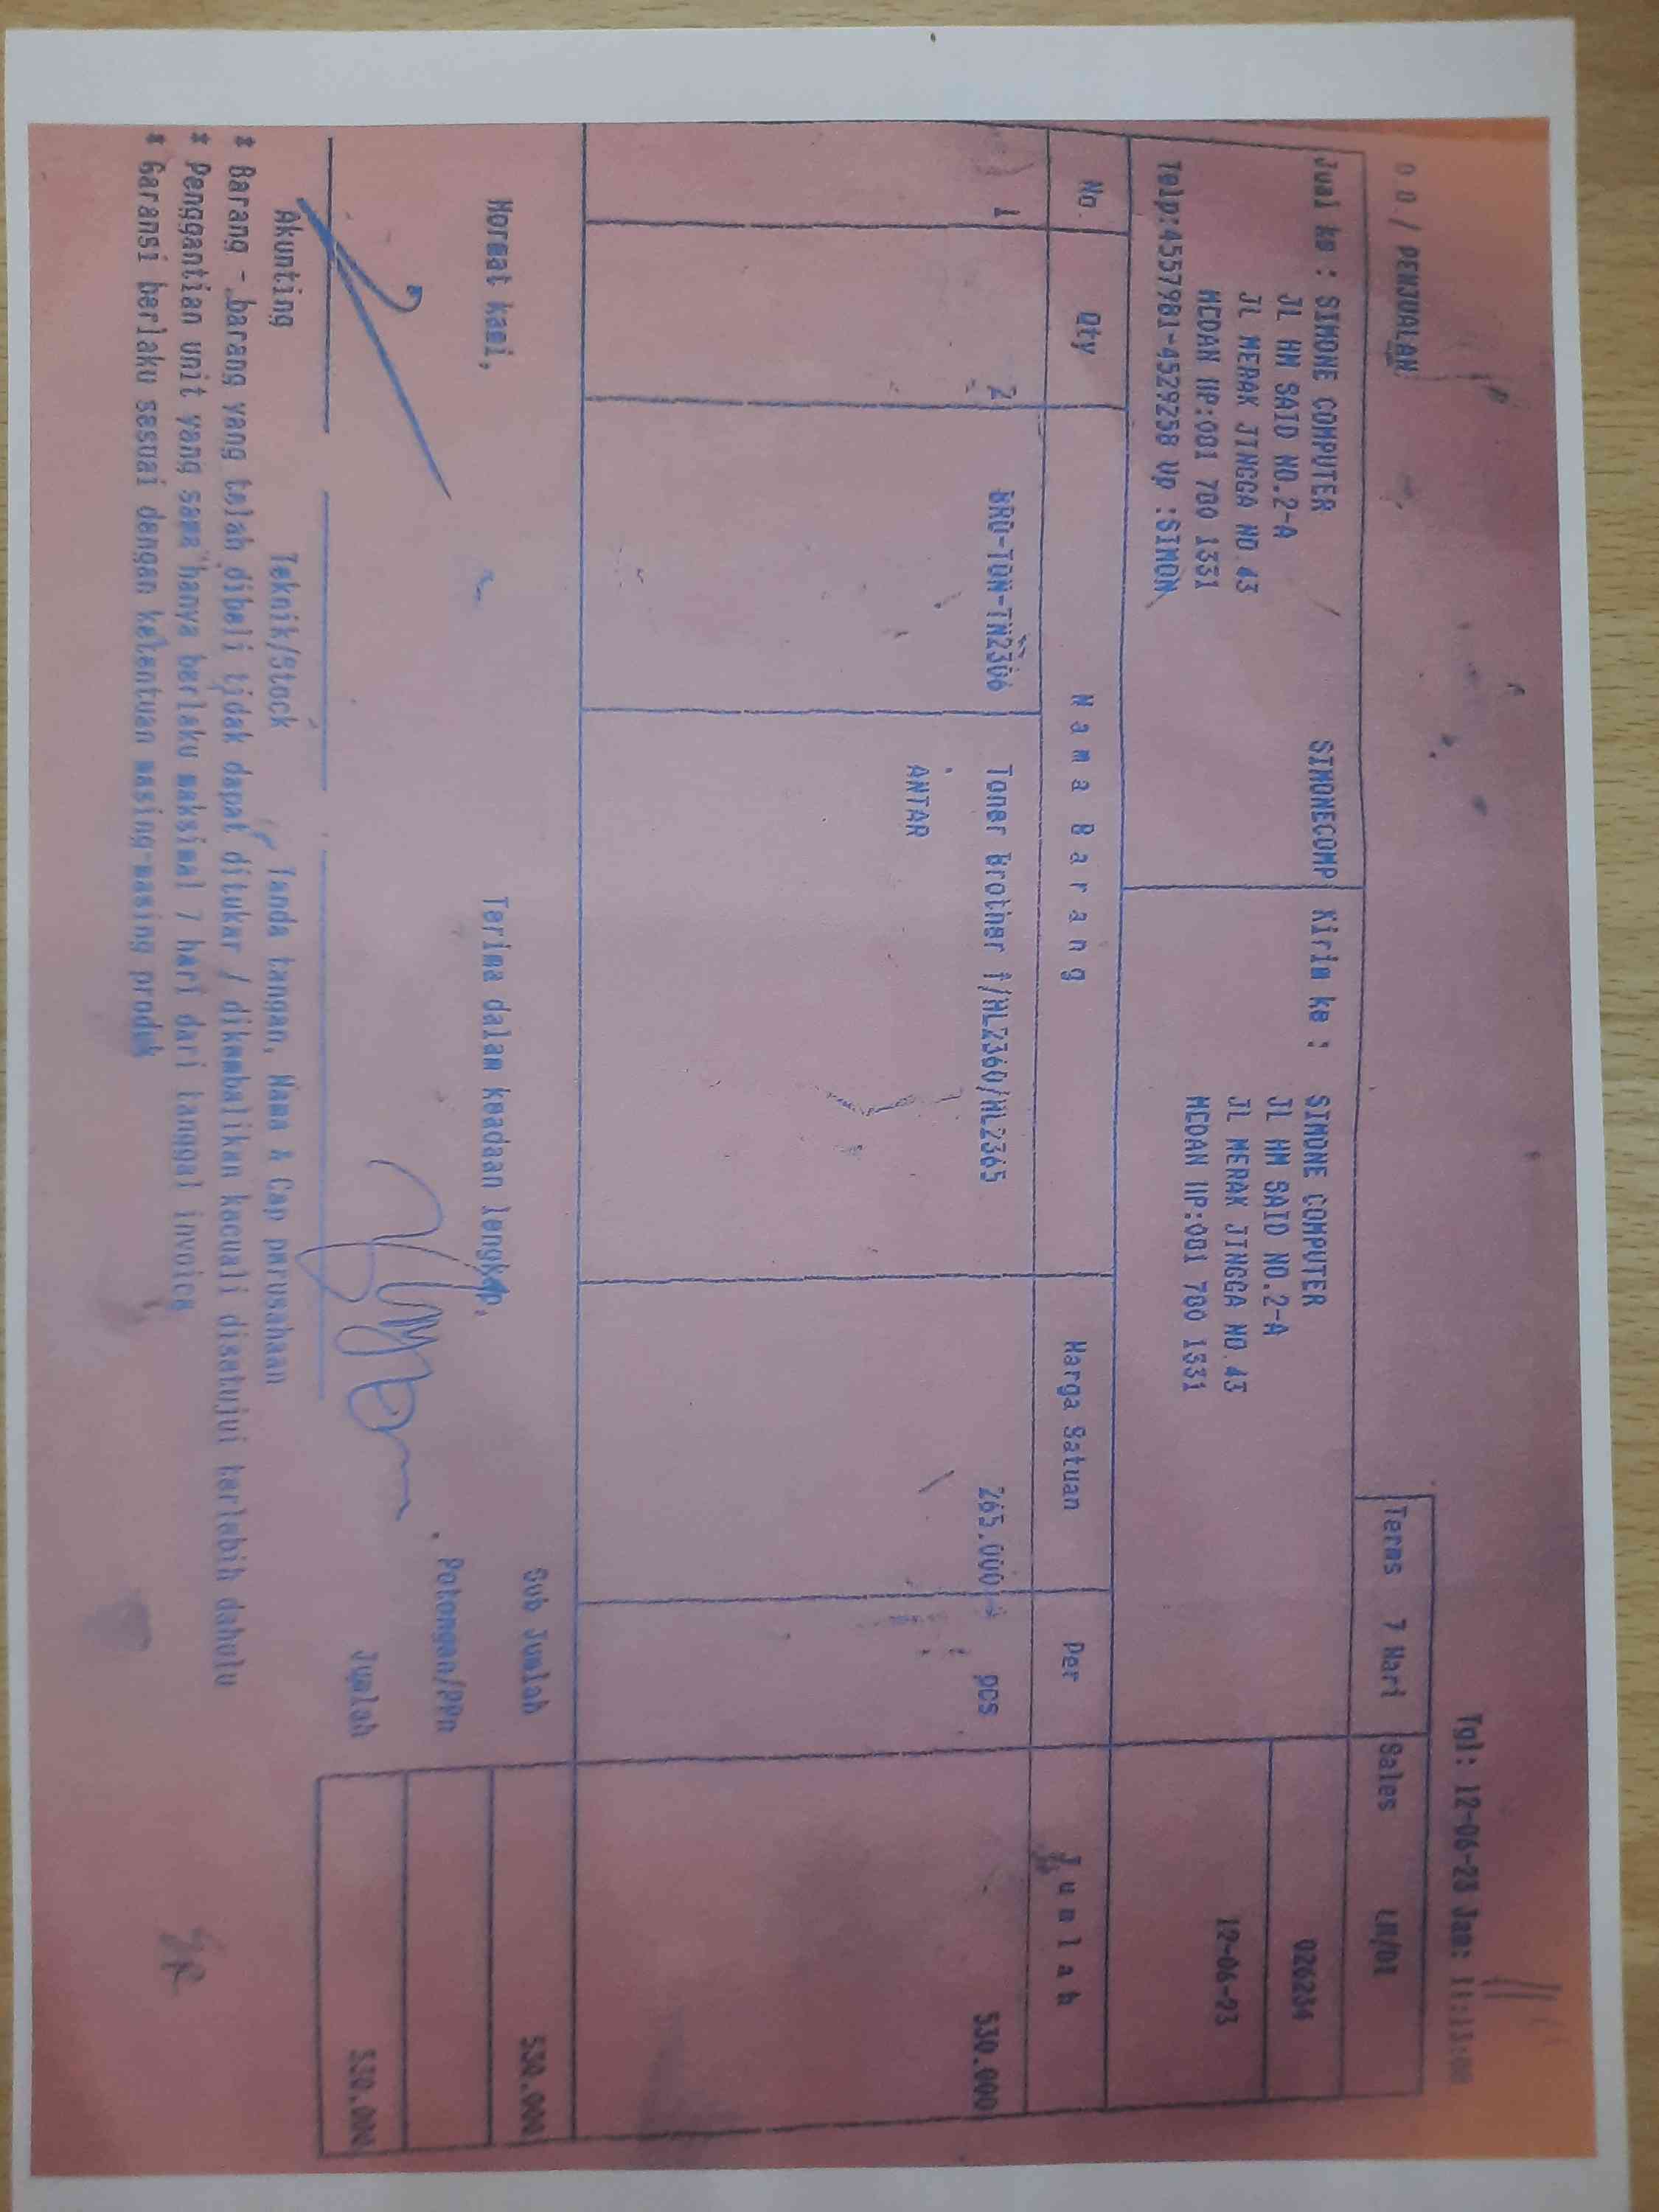 Tgl: 12-06-23 Jam: 11:13:00
0 0 / PENJUALAN
Terms 7 Hari Sales LM/01
Jual ke : SIMONE COMPUTER SIMONECOMP Kirim ke : SIMONE COMPUTER
JL HM SAID NO.2-A JL HM SAID NO.2-A 026234
JL MERAK JINGGA NO.43 JL MERAK JINGGA NO.43
MEDAN HP:081 780 1331 MEDAN HP:081 780 1331 12-06-23
Telp:4557981-4529258 Up :SIMON
No. Qty Nama Barang Harga Satuan Per Jumlah
1 2 BRO-TON-TN2306 Toner Brother f/HL2360/HL2365 265.000 pcs 530.000
ANTAR
Hormat kami, Terima dalam keadaan lengkap, Sub Jumlah 530.000
Potongan/PPn
Jumlah 530.000
Akunting Teknik/Stock Tanda tangan, Nama & Cap perusahaan
* Barang - barang yang telah dibeli tidak dapat ditukar / dikembalikan kecuali disetujui terlebih dahulu
* Penggantian unit yang sama hanya berlaku maksimal 7 hari dari tanggal invoice
* Garansi berlaku sesuai dengan ketentuan masing-masing produk